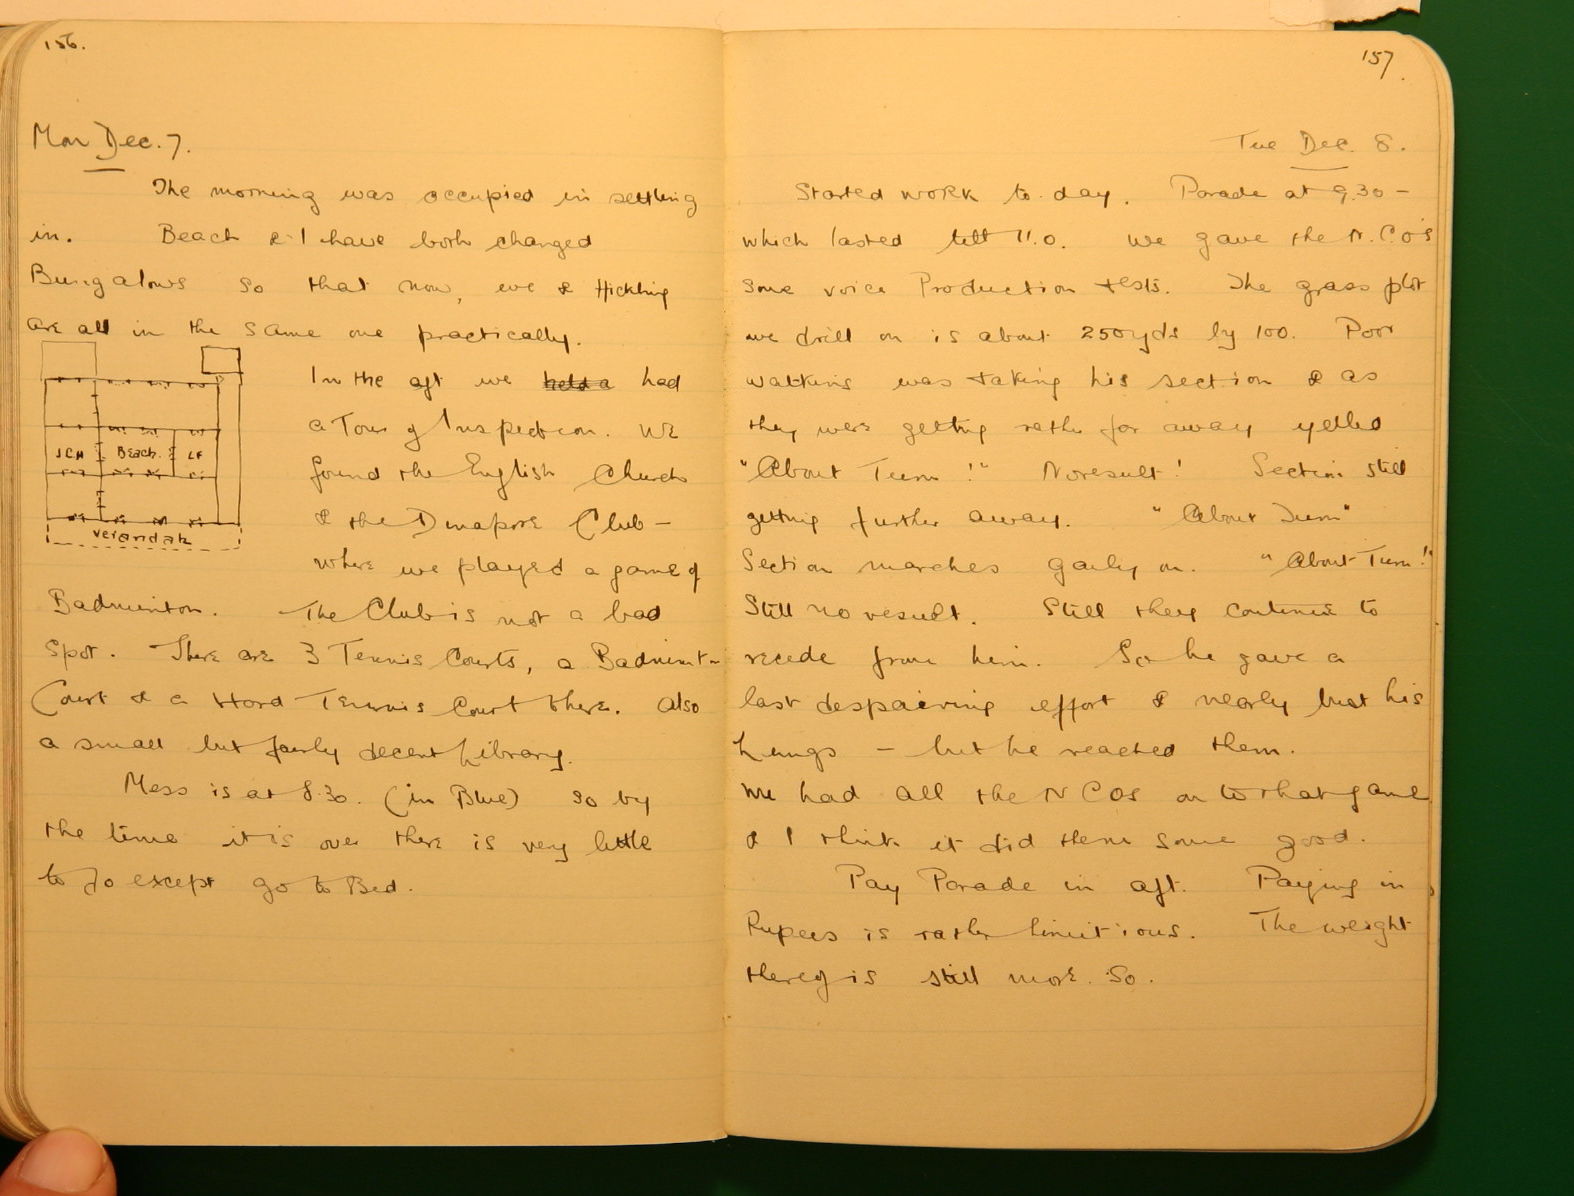 156.
Mon Dec. 7.
The morning was occupied in settling
in. Beach & I have both changed
Bungalows so that now, we & Hickling
are all in the same one practically.
In the aft we held a had
a Tour of Inspection. We
found the English Church
& the Dinapore Club –
where we played a game of
JCH Beach LF
Verandah
Badminton. The Club is not a bad
spot. There are 3 Tennis Courts, a Badminton
Court & a Hard Tennis Court there. Also
a small but fairly decent Library.
Mess is at 8.30. (in Blue) so by
the time it is over there is very little
to do except go to Bed.
157.
Tue Dec. 8.
Started work to day. Parade at 9.30 –
which lasted till 11.0. We gave the N.C.O's
some voice Production tests. The grass plot
we drill on is about 250yds by 100. Poor
Watkins was taking his section & as
they were getting rather far away yelled
"About Turn!" No result! Section still
getting further away. "About Turn"
Section marches gaily on. "About Turn!"
Still no result. Still they continue to
recede from him. So he gave a
last despairing effort & nearly bust his
Lungs – but he reached them.
We had all the N C Os on to that game
& I think it did them some good.
Pay Parade in aft. Paying in
Rupees is rather . The weight
thereof is still more so.